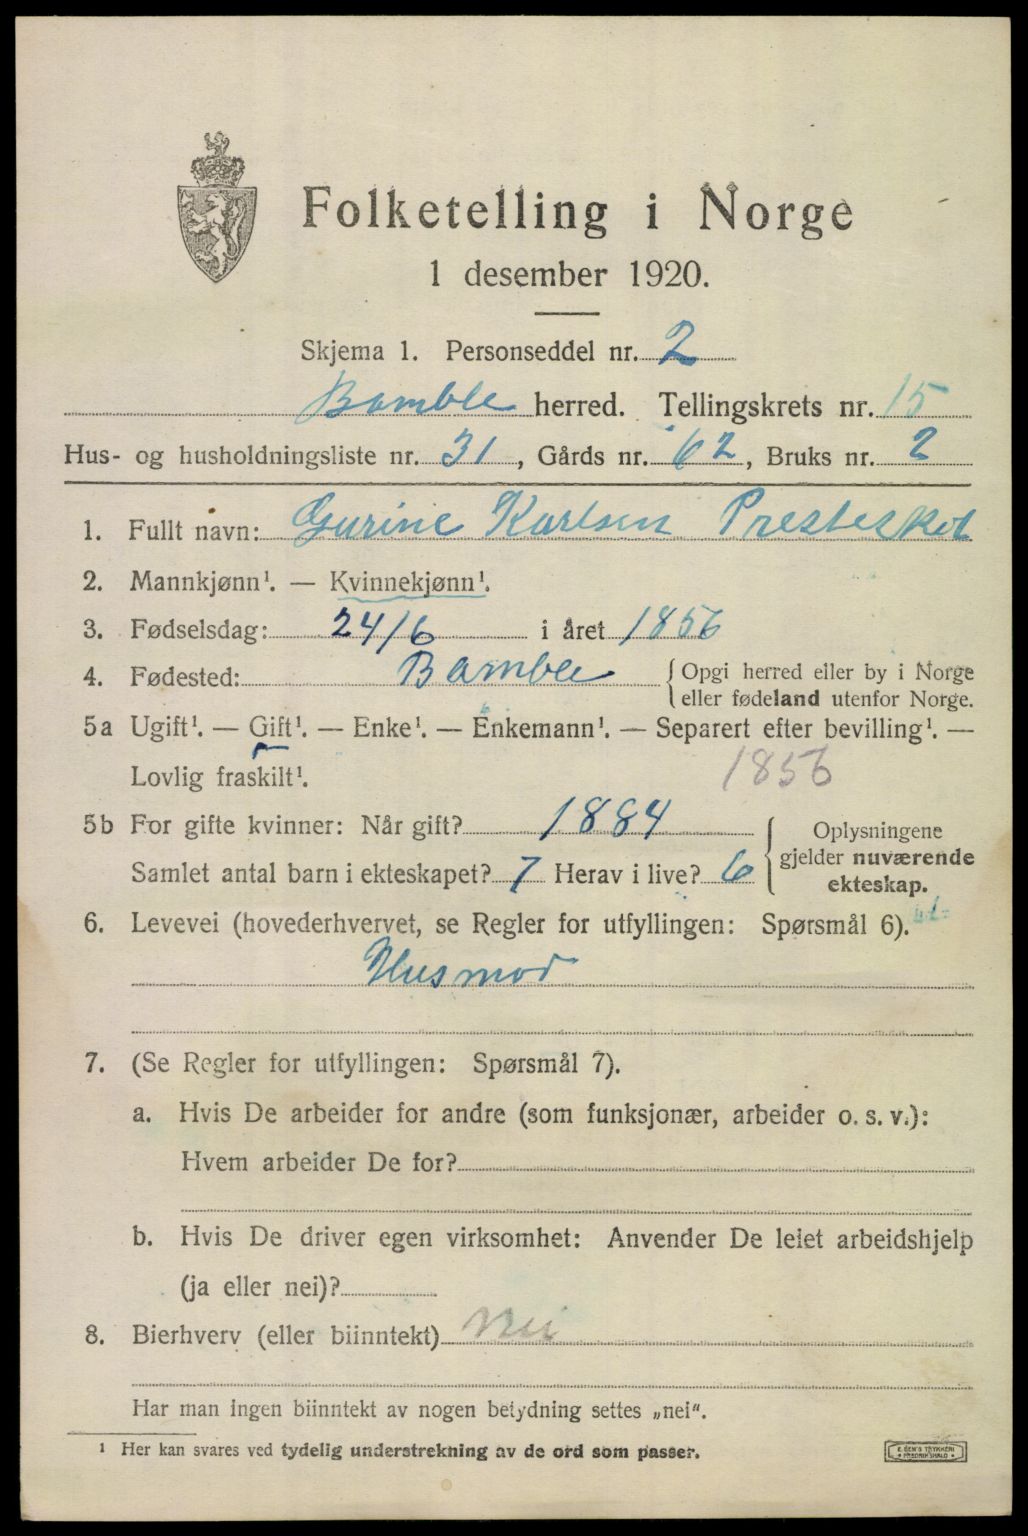 Folketelling i Norge
1 desember 1920.
Skjema 1. Personseddel nr. 2
Bamble herred. Tellingskrets nr. 15
Hus- og husholdningsliste nr. 31, Gårds nr. 62, Bruks nr. 2
1. Fullt navn: Gurine Karlsen Presteskot
2. Mannkjønn¹. — Kvinnekjønn¹.
3. Fødselsdag: 24/6 i året 1856
4. Fødested: Bamble {Opgi herred eller by i Norge
eller fødeland utenfor Norge.
5a Ugift¹. — Gift¹. — Enke¹. — Enkemann¹. — Separert efter bevilling¹. —
Lovlig fraskilt¹. 1856
5b For gifte kvinner: Når gift? 1884
Samlet antal barn i ekteskapet? 7 Herav i live? 6
{Oplysningene
gjelder nuværende
ekteskap.
6. Levevei (hovederhvervet, se Regler for utfyllingen: Spørsmål 6).
Husmor
7. (Se Regler for utfyllingen: Spørsmål 7).
a. Hvis De arbeider for andre (som funksjonær, arbeider o. s. v.):
Hvem arbeider De for?
b. Hvis De driver egen virksomhet: Anvender De leiet arbeidshjelp
(ja eller nei)?
8. Bierhverv (eller biinntekt) Nei
Har man ingen biinntekt av nogen betydning settes „nei".
¹ Her kan svares ved tydelig understrekning av de ord som passer.
E. SEM'S TRYKKERI
• FREDRIKSHALD •